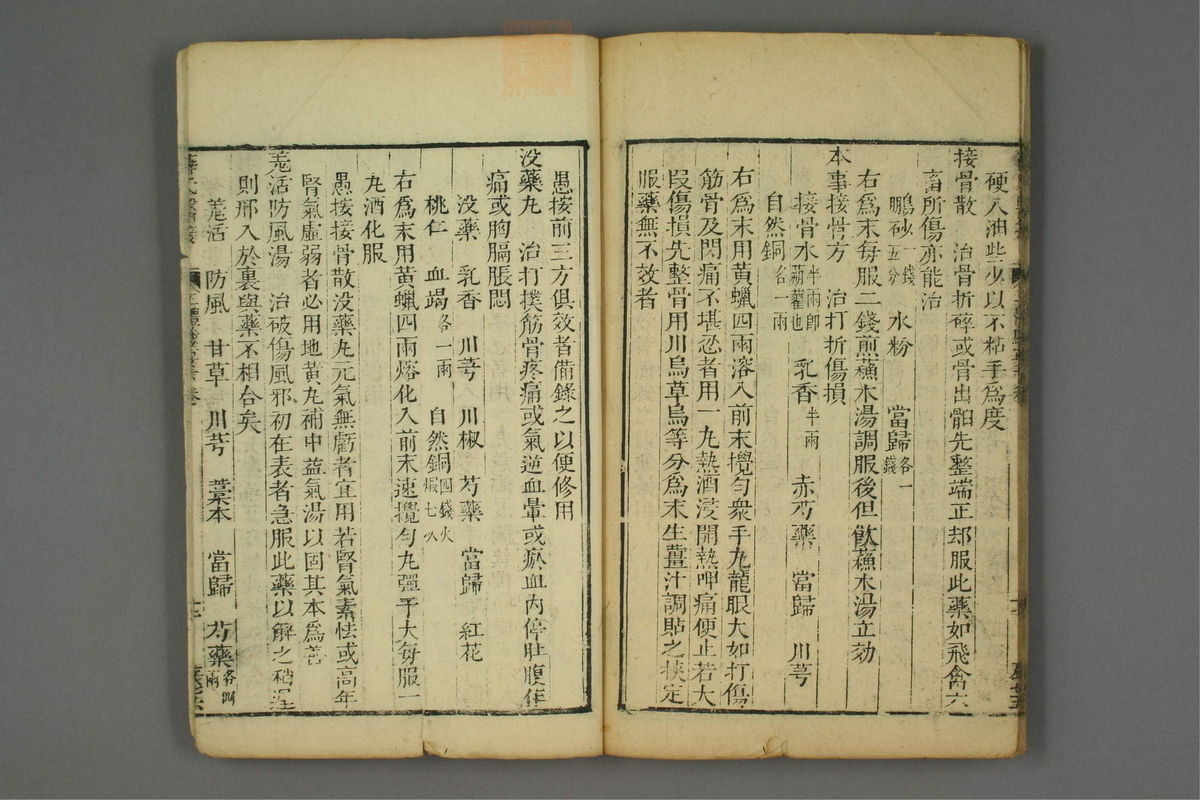 硬入油些少以不粘手為度
接骨散　治骨折碎或骨出臼先整端正却服此藥如飛禽六
畜所傷亦能治
鵬砂一錢五分　水粉　當歸各一錢
右為末每服二錢煎蘓木湯調服後但飲蘓木湯立効
本事接骨方　治打折傷損
接骨木半兩即蒴藋也　乳香半兩　赤芍藥　當歸　川芎
自然銅各一兩
右為末用黃蠟四兩溶入前末攪勻衆手丸龍眼大如打傷
筋骨及閃痛不堪忍者用一丸熱酒浸開熱呷痛便止若大
叚傷損先整骨用川烏草烏等分為末生薑汁調貼之挾定
服藥無不效者
愚按前三方俱效者備錄之以便修用
没藥丸　治打撲筋骨疼痛或氣逆血暈或瘀血内停肚腹作
痛或胸膈脹悶
没藥　乳香　川芎　川椒　芍藥　當歸　紅花
桃仁　血竭各一兩　自然銅四錢火煅七次
右為末用黃蠟四兩熔化入前末速攪勻丸彈子大每服一
丸酒化服
愚按接骨散没藥丸元氣無虧者宜用若腎氣素怯或高年
腎氣虛弱者必用地黃丸補中益氣湯以固其本為善
羗活防風湯　治破傷風邪初在表者急服此藥以解之稍遲
則邪入於裏與藥不相合矣
羗活　防風　甘草　川芎　藁本　當歸　芍藥各四兩